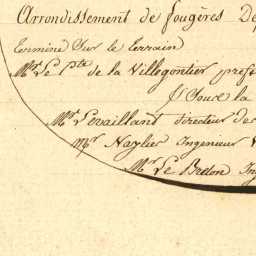 Arrondissement de fougères De
Terminé Sur le Terrain
Mr. Le Pte de la Villegontier préf
Sr Jouce la
Mr Levaillant directeur des
Mr Naylier Ingenieur V
Mr Le Breton Ing